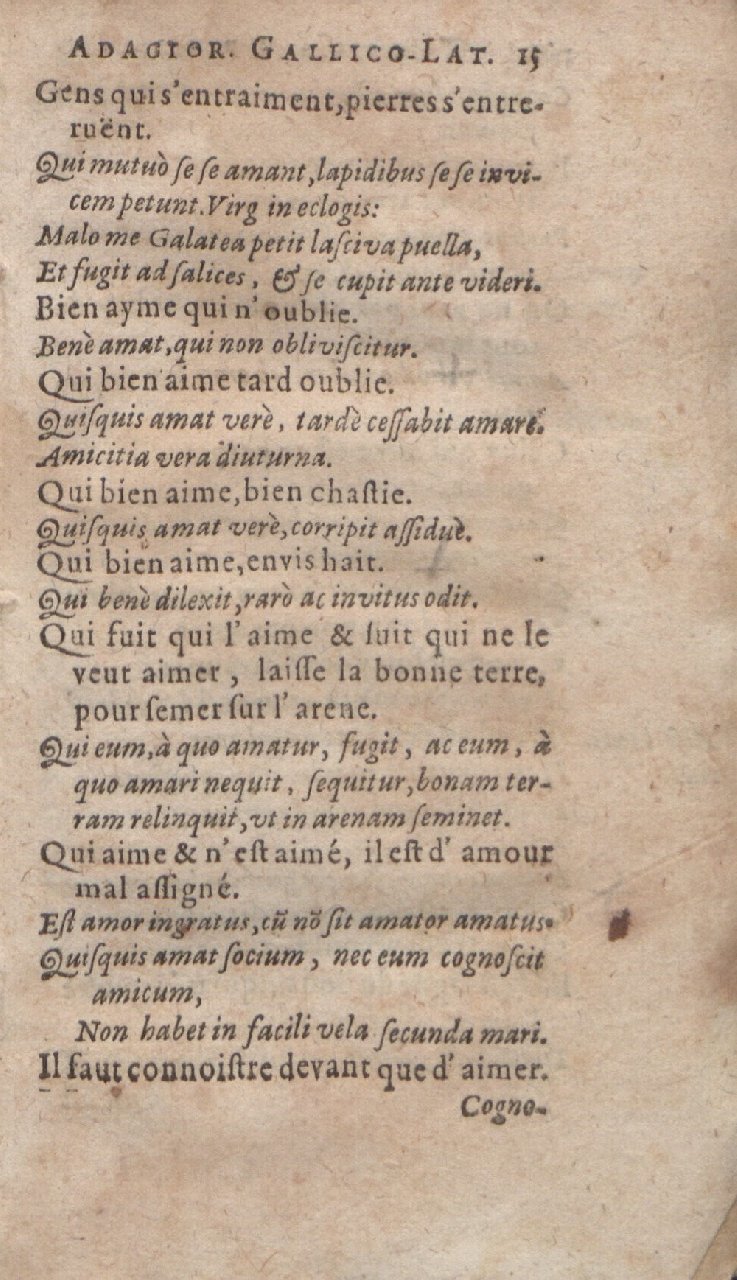 ADAGIOR. GALLICO-LAT. 15
Gens qui s'entraiment, pierres s'entre-
ruënt.
Qui mutuò ſe ſe amant, lapidibus ſe ſe invi-
cem petunt. Virg in eclogis:
Malo me Galatea petit laſciva puella,
Et fugit ad ſalices, & ſe cupit ante videri.
Bien ayme qui n'oublie.
Benè amat, qui non obliviſcitur.
Qui bien aime tard oublie.
Quiſquis amat verè, tardè ceſſabit amare.
Amicitia vera diuturna.
Qui bien aime, bien chaſtie.
Quiſquis amat verè, corripit aſſiduè.
Qui bien aime, envis hait.
Qui benè dilexit, rarò ac invitus odit.
Qui fuit qui l'aime & ſuit qui ne le
veut aimer, laiſſe la bonne terre,
pour ſemer ſur l'arene.
Qui eum, à quo amatur, fugit, ac eum, à
quo amari nequit, ſequitur, bonam ter-
ram relinquit, vt in arenam ſeminet.
Qui aime & n'eſt aimé, il eſt d'amour
mal aſſigné.
Eſt amor ingratus, cū nō ſit amator amatus.
Quiſquis amat ſocium, nec eum cognoſcit
amicum,
Non habet in facili vela ſecunda mari.
Il faut connoiſtre devant que d'aimer.
Cogno-